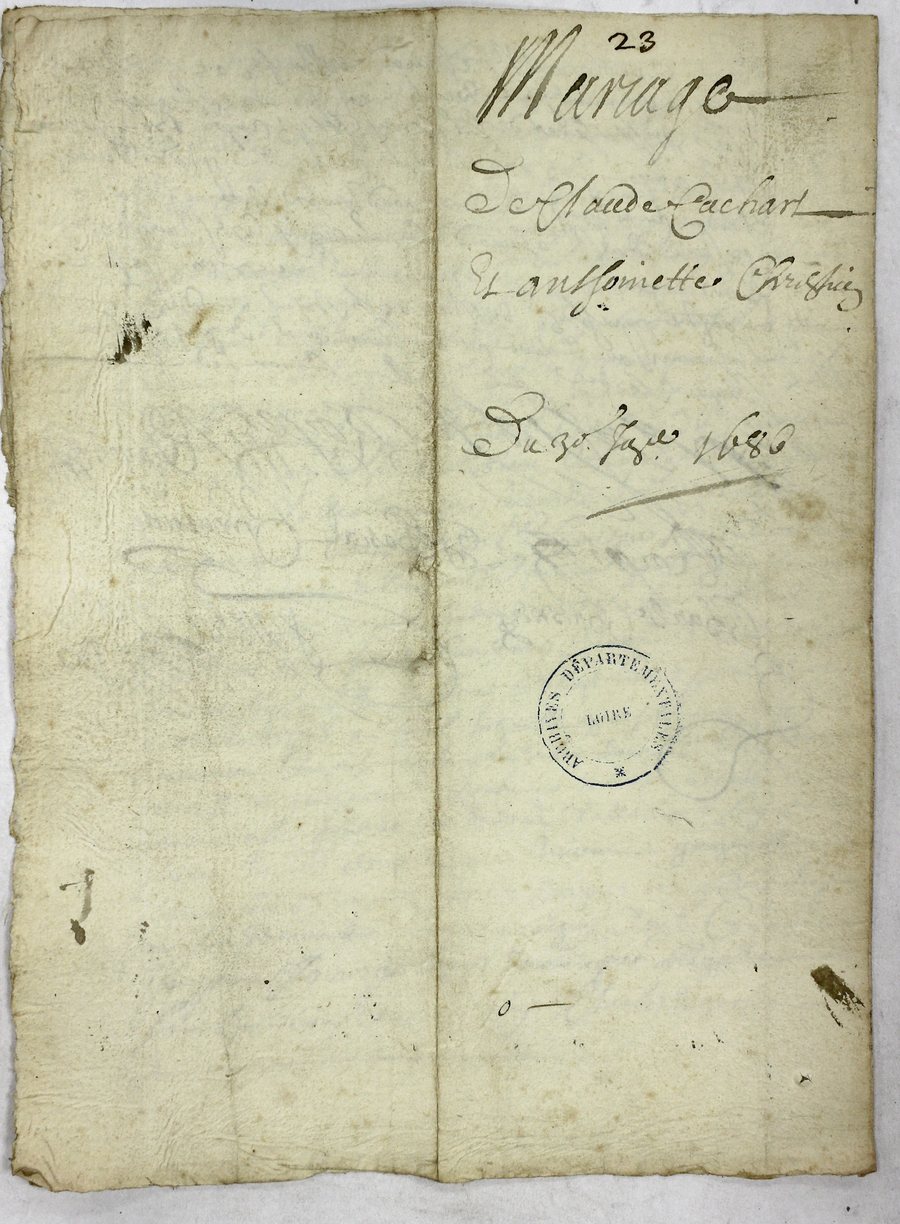 23
Mariage
De Claude Cachart
Et anthoinette
Du 30 1686
ARCHIVES DÉPARTEMENTALES
LOIRE
0